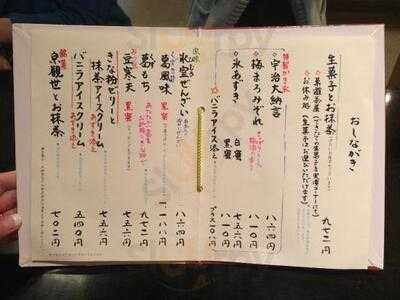 おしながき
生菓子とお抹茶 九七二円
◇菓遊茶屋(できたての生菓子を実演コーナーにて)
◇お休み処
(生菓子はお選びいただけます)
特製かき氷
◇宇治大納言 八六四円
◇梅まろみぞれ 八一〇円
◇氷あずき 白蜜 七五六円
黒蜜 八一〇円
バニラアイス添え プラス一〇八円
氷室ぜんざい 八六四円
葛風味
葛もち 黒蜜 九七二円
豆寒天 黒蜜 七五六円
きな粉ゼリーと
抹茶アイスクリーム あずき添え 七五六円
バニラアイスクリーム あずき添え 五四〇円
銘菓
京観世とお抹茶 七〇二円